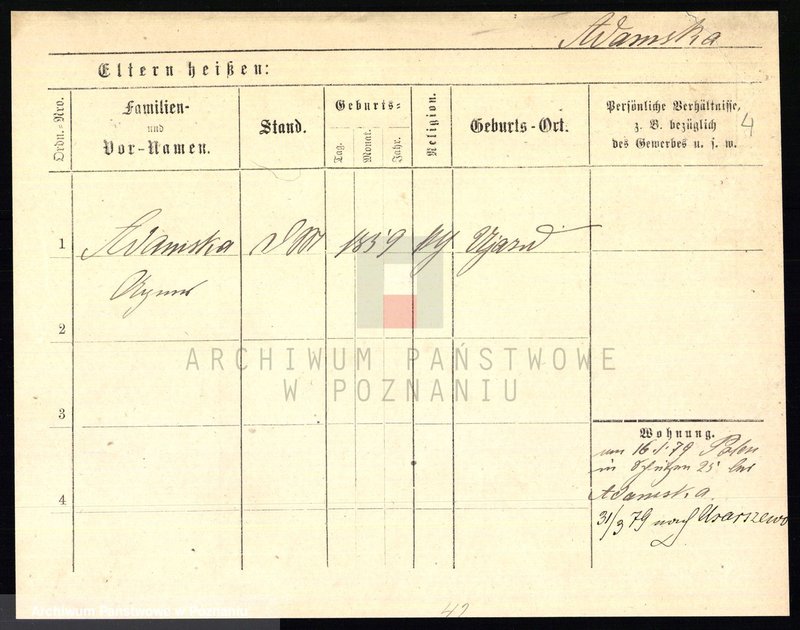 Adamska
Eltern heißen:
Ordn.-Nro.
Familien-
und
Vor-Namen.
Stand.
Geburts-
Tag.
Monat.
Jahr.
Religion.
Geburts-Ort.
Persönliche Verhältnisse,
z. B. bezüglich
des Gewerbes u. s. w.
4
1
Adamska
1859
Ujazd
2
3
4
ARCHIWUM PAŃSTWOWE
W POZNANIU
Wohnung.
16/1 79 Posen
in Schützen 25 bei
Adamska.
31/3 79 nach Usarzewo
Archiwum Państwowe w Poznaniu
42